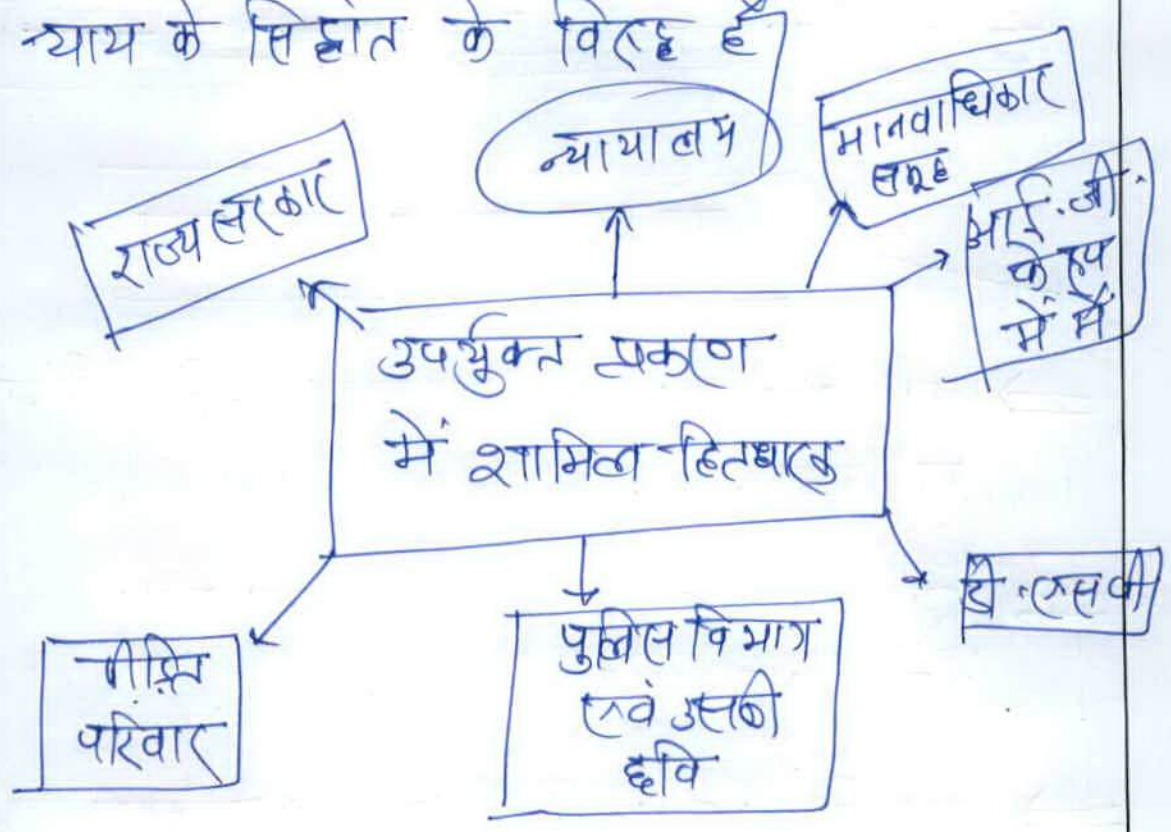 न्याय के सिद्धांत के विरूद्ध है
न्यायालय
मानवाधिकार
समूह
राज्य सरकार
आई.जी.
के रूप
में मैं
उपर्युक्त प्रकरण
में शामिल हितधारक
डी.एसपी
पीड़ित
परिवार
पुलिस विभाग
एवं उसकी
छवि